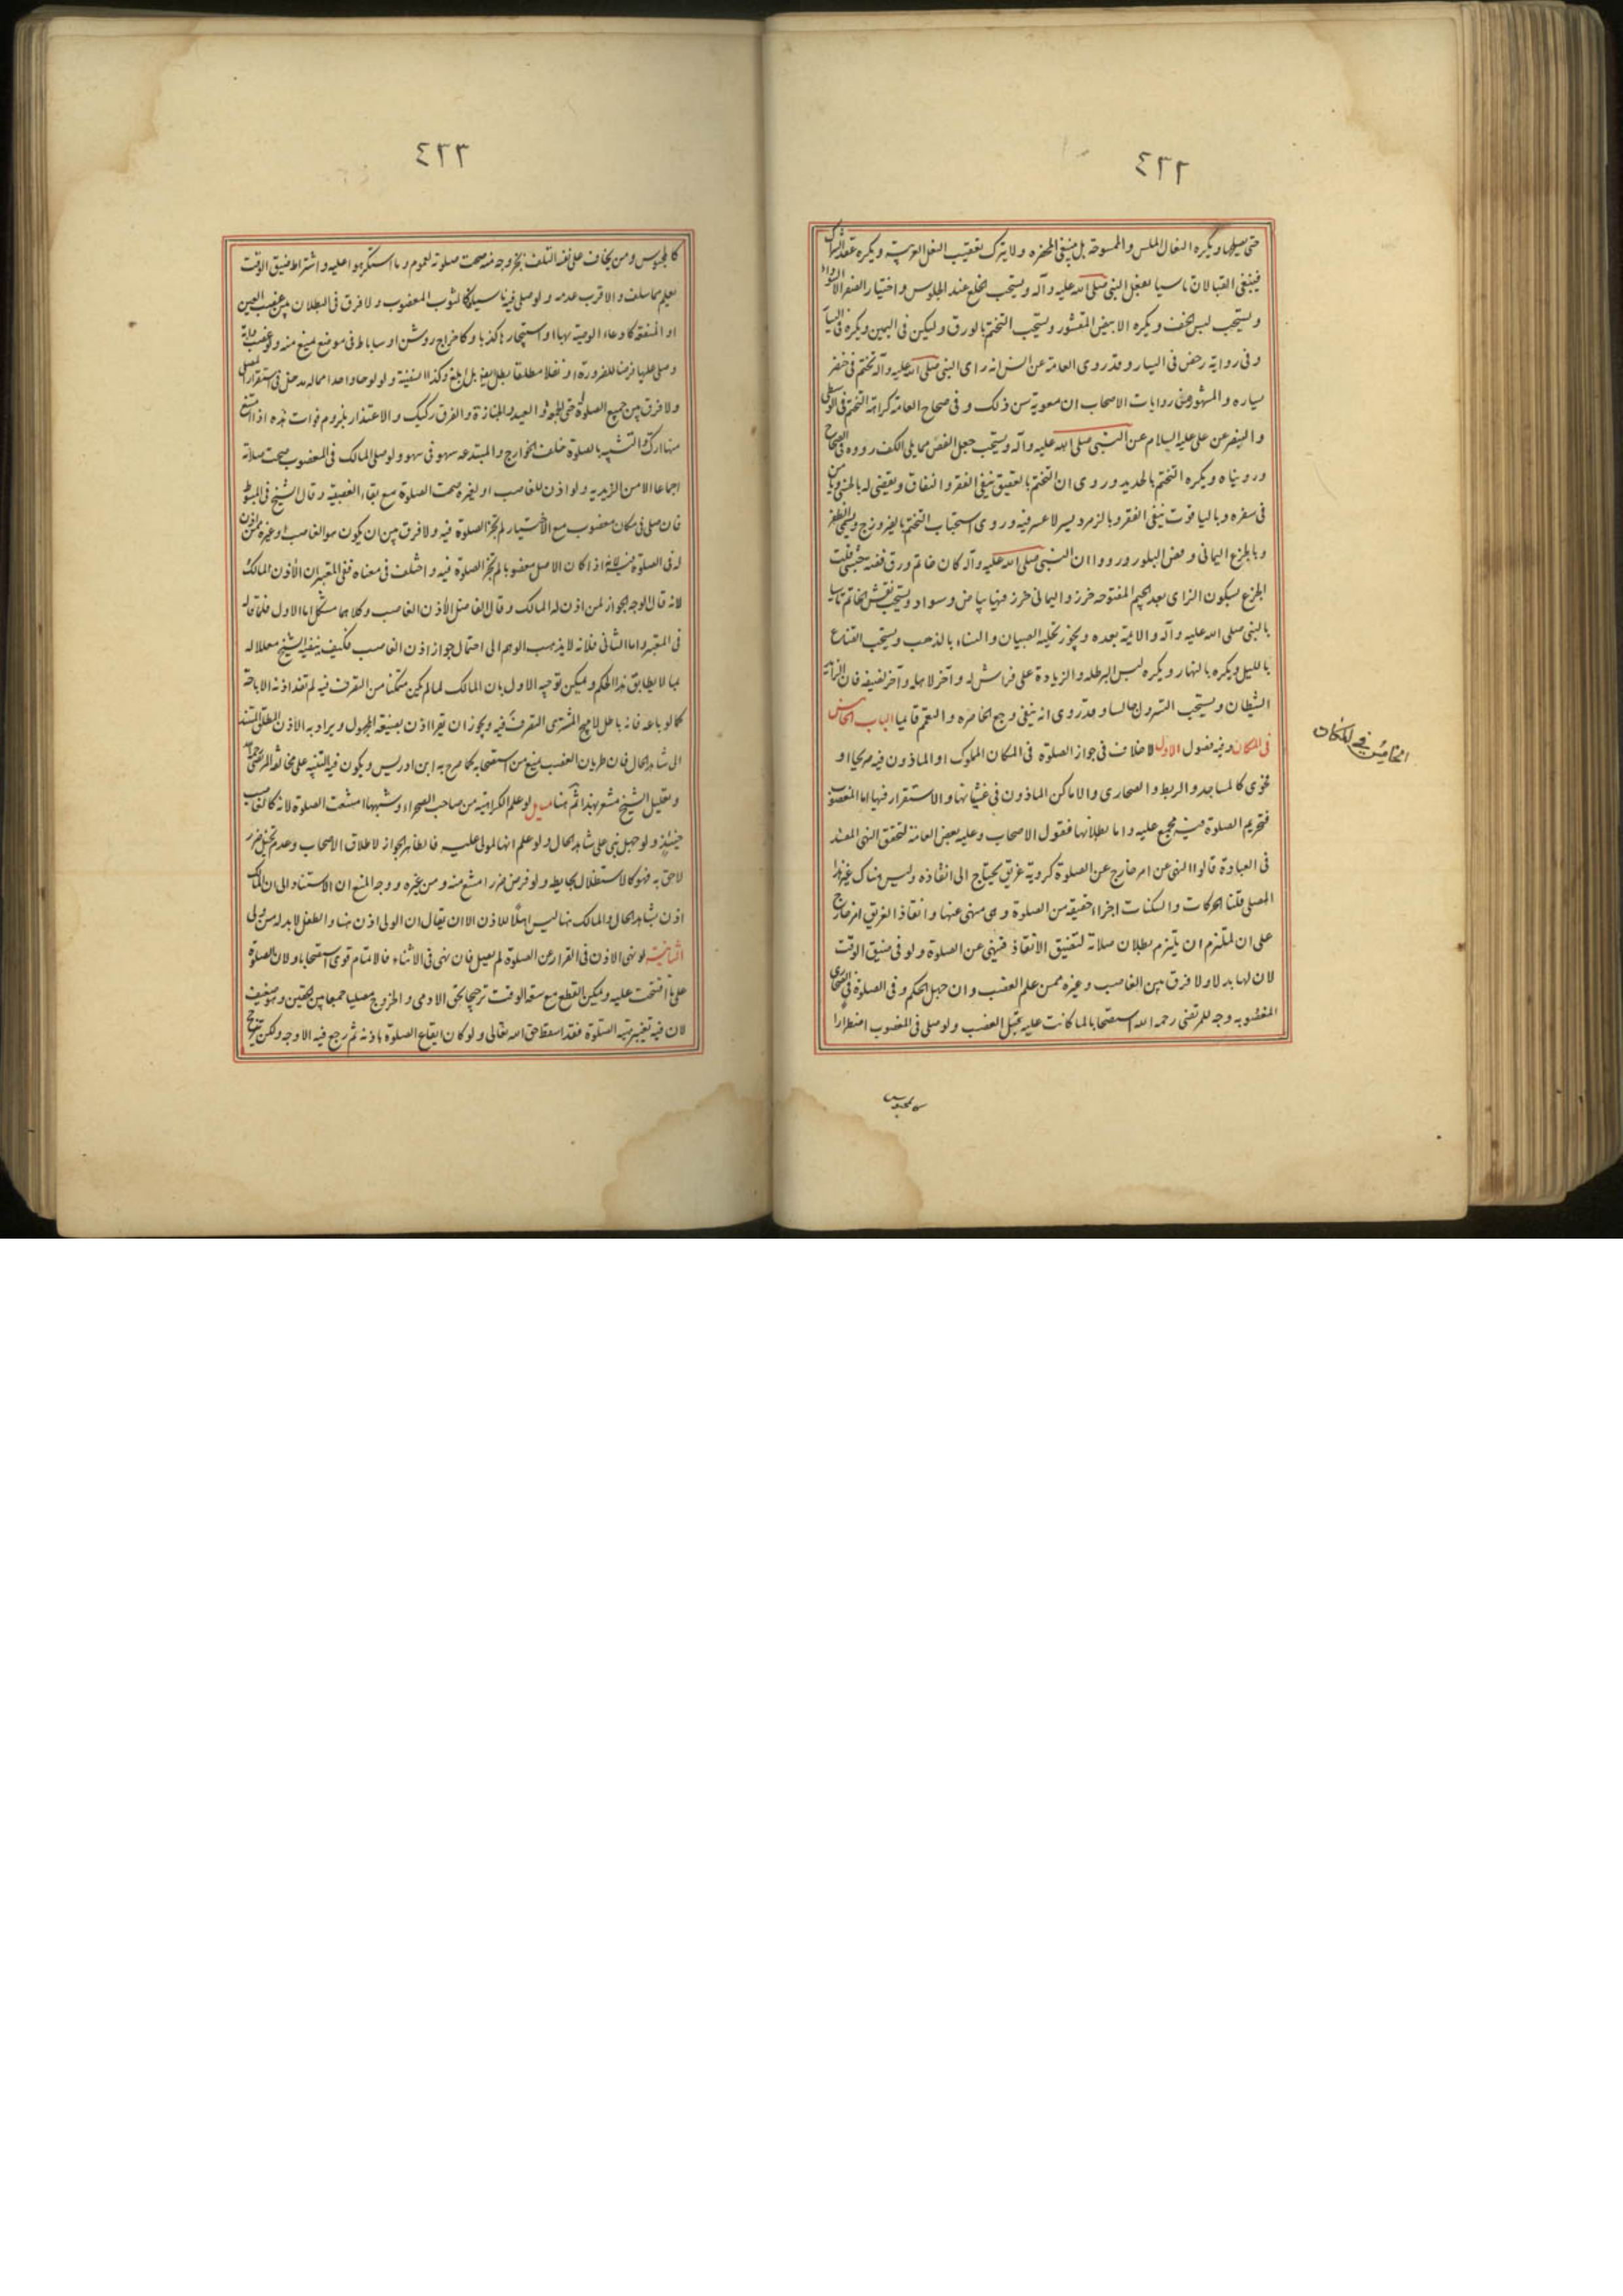 ٤٢٢
حتى يصليها ويكره النعال الملس والممسوحة بل ينبغي المخصرة ولا يترك تعقيب النعل العربية ويكره عقد الشراك
فينبغي القبالان تاسيا بنعل النبي صلى الله عليه وآله ويستحب الخلع عند الجلوس واختيار الصفر لا السواد
ويستحب لبس الخف ويكره الابيض المقشور ويستحب التختم بالورق وليكن في اليمين ويكره في اليسار
وفي رواية رخص في اليسار وقد روى العامة عن انس انه راى النبي صلى الله عليه وآله تختم في خنصر
يساره والمشهور في روايات الاصحاب ان معوية سن ذلك وفي صحاح العامة كراهة التختم في الوسطى
والبنصر عن علي عليه السلام عن النبي صلى الله عليه وآله ويستحب جعل الفص مما يلي الكف رووه في الصحاح
وروينا ه ويكره التختم بالحديد وروى ان التختم بالعقيق ينفي الفقر والنفاق ويقضى له بالحسنى ويامن
في سفره وباليا قوت ينفي الفقر وبالزمرد يسر لا عسر فيه وروى استحباب التختم بالفيروزج ويسمى الظفر
وبالجزع اليماني ونعم الفص البلور ورووا ان النبي صلى الله عليه وآله كان خاتم ورق فصه حبشي قلت
الجزع بسكون الزاى بعد الجيم المفتوحه خرز واليماني خرز فيها بياض وسواد ويستحب نقش الخاتم تاسيا
بالنبي صلى الله عليه وآله والائمة بعده ويجوز تحلية الصبيان والنساء بالذهب ويستحب القناع
بالليل ويكره بالنهار ويكره لبس البرطله والزيادة على فراش له وآخر لاهله وآخر لضيفه فان الزائد
للشيطان ويستحب التسرول جالسا وقد روى انه ينفي وجع الخاصره والتعمم قايما الباب الخامس
في المكان وفيه فصول الاول لا خلاف في جواز الصلوة في المكان المملوك او الماذون فيه صريحا او
فحوى كالمساجد والربط والصحارى والاماكن الماذون في غشيانها والاستقرار فيها اما المغصوب
فتحريم الصلوة فيه مجمع عليه واما بطلانها فقول الاصحاب وعليه بعض العامة لتحقق النهى المفسد
في العبادة قالوا النهى عن امر خارج عن الصلوة كروية غريق يحتاج الى انقاذه وليس هناك غير هذا
المصلي قلنا الحركات والسكنات اجزاء حقيقة من الصلوة وهي منهى عنها وانقاذ الغريق امر خارج
على ان لملتزم ان يلتزم بطلان صلاته لتضيق الانقاذ فنهي عن الصلوة ولو في ضيق الوقت
لان لها بدلا ولا فرق بين الغاصب وغيره ممن علم الغصب وان جهل الحكم وفي الصلوة في الصحارى
المغصوبه وجه للمرتضى رحمه الله استصحابا لما كانت عليه قبل الغصب ولو صلى في المغصوب اضطرارا
كالمحبوس
الخامس في المكان
٤٢٣
كالمحبوس ومن يخاف على نفسه التلف بخروجه منه صحت صلوته لعموم وما استكرهوا عليه واشتراط ضيق الوقت
يعلم مما سلف والاقرب عدمه ولو صلى فيه ناسيا فكالثوب المغصوب ولا فرق في البطلان بين غصب العين
او المنفعة كادعاء الوصية بها او استيجار ها كذبا وكاخراج روشن او ساباط في موضع يمنع منه ولو غصب دابة
وصلى عليها فرضا للضرورة او نفلا مطلقا بطل الفرض بل ابلغ وكذا السفينة ولو لوحا واحدا مما له مدخل في استقرار المصلي
ولا فرق بين جميع الصلوة حتى الجمعة والعيد والجنازة والفرق ركيك والاعتذار بلزوم فوات هذه اذا امتنع
منها ارك والتشبيه بالصلوة خلف الخوارج والمبتدعه سهو في سهو ولو صلى المالك في المغصوب صحت صلاته
اجماعا الا من الزيديه ولو اذن للغاصب او لغيره صحت الصلوة مع بقاء الغصبية وقال الشيخ في المبسوط
فان صلى في مكان مغصوب مع الاختيار لم تجز الصلوة فيه ولا فرق بين ان يكون هو الغاصب او غيره ممن اذن
له في الصلوة فيه لانه اذا كان الاصل مغصوبا لم تجز الصلوة فيه واختلف في معناه ففي المعتبر ان الاذن المالك
لانه قال الوجه الجواز لمن اذن له المالك وقال الفاضل الاذن الغاصب وكلاهما مشكل اما الاول فلما قاله
في المعتبر واما الثاني فلانه لا يذهب الوهم الى احتمال جواز اذن الغاصب فكيف ينفيه الشيخ معللا له
بما لا يطابق هذا الحكم ويمكن توجيه الاول بان المالك لما لم يكن متمكنا من التصرف فيه لم تفد اذنه الاباحة
كما لو باعه فانه باطل لا يبيح للمشترى التصرف فيه ويجوز ان تقرا اذن بصيغة المجهول ويراد به الاذن المطلق المستند
الى شاهد الحال فان طريان الغصب يمنع من استصحابه كما صرح به ابن ادريس ويكون فيه التنبيه على مخالفة المرتضى رحمه الله
وتعليل الشيخ مشعر بهذا ثم هنا مسايل لو علم الكراهية من صاحب الصحراء وشبهها امتنعت الصلوة لانه كالغاصب
حينئذ ولو جهل بني على شاهد الحال ولو علم انها لمولى عليه فالظاهر الجواز لاطلاق الاصحاب وعدم تخيل ضرر
لاحق به فهو كالاستظلال بحايطه ولو فرض ضرر امتنع منه ومن غيره ووجه المنع ان الاستناد الى ان المالك
اذن بشاهد الحال والمالك هنا ليس اهلا للاذن الا ان يقال ان الولى اذن هنا والطفل لا بد له من ولى
الثانية لو نهى الاذن في القرار عن الصلوة لم يصل فان نهى في الاثناء فالاتمام قوى استصحابا ولان الصلوة
على ما افتتحت عليه ويمكن القطع مع سعة الوقت ترجيحا لحق الادمى والخروج مصليا جمعا بين الحقين وهو ضعيف
لان فيه تغيير هيئة الصلوة فقد اسقط حق الله تعالى ولو كان ايقاع الصلوة باذنه ثم رجع فيه الاوجه ولكن يترجح